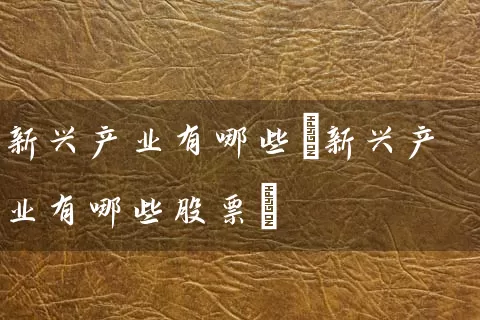 新兴产业有哪些新兴产
业有哪些股票